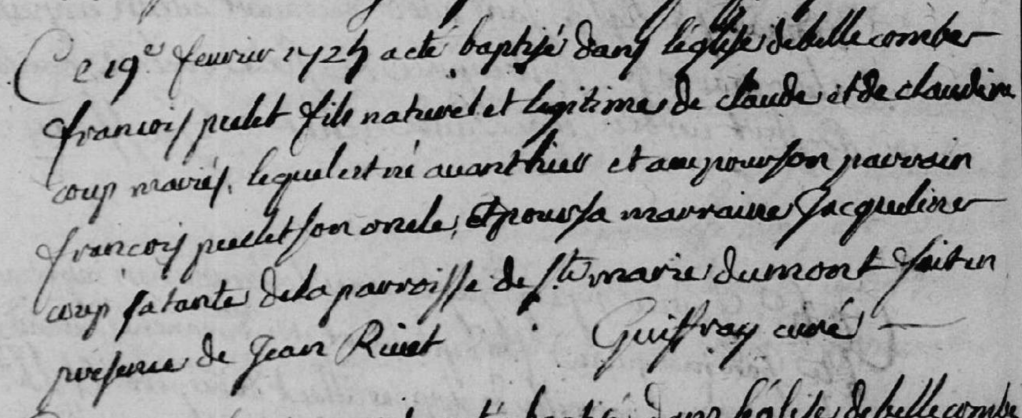 Ce 19e fevrier 1725 a eté baptisé dans l'église de bellecombe
francois pellet fils naturel et legitime de claude et de claudine
coup mariés, lequel est né avanthier et a eu pour son parrain
francois pellet son oncle, et pour sa marraine Jacqueline
coup sa tante de la parroisse de Ste marie du mont fait en
presence de Jean Rivet Guiffray curé
baptisé dans l'église de bellecombe